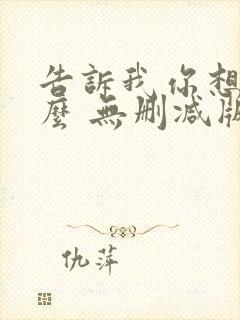 告訴我 你想
麼 無刪减版
仇萍